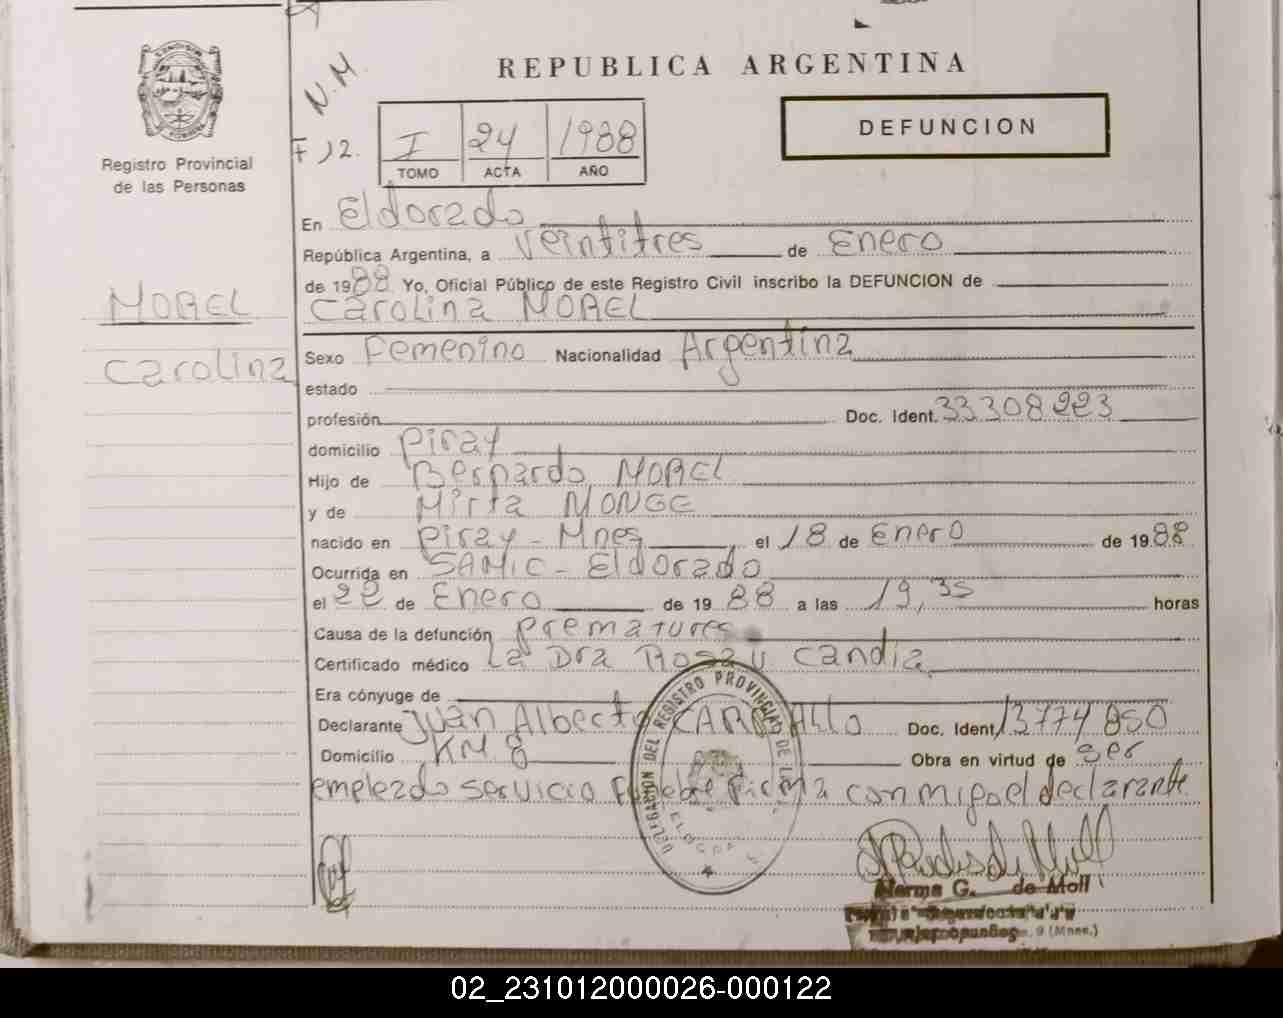 REPUBLICA ARGENTINA
N.M
F 12.
I 24 1988
TOMO ACTA AÑO
DEFUNCION
Registro Provincial
de las Personas
MOREL
Carolina
En Eldorado
República Argentina, a Veintitres de Enero
de 1988 Yo, Oficial Público de este Registro Civil inscribo la DEFUNCION de
Carolina MOREL
Sexo Femenino Nacionalidad Argentina
estado
profesión Doc. Ident. 33308223
domicilio Piray
Hijo de Bernardo MOREL
y de Mirta MONGE
nacido en Piray - Mnes el 18 de Enero de 1988
Ocurrida en SAMIC - Eldorado
el 22 de Enero de 19 88 a las 19,35 horas
Causa de la defunción prematures
Certificado médico La Dra Rosa V Candia
Era cónyuge de
Declarante Juan Alberto Doc. Ident. 13774850
Domicilio KM 8 Obra en virtud de ser
empleado servicio Funebre Firma conmigo el declarante
DELEGACION DEL REGISTRO PROVINCIAL DE LAS
Norma G. de Moll
9 (Mnes.)
02_231012000026-000122